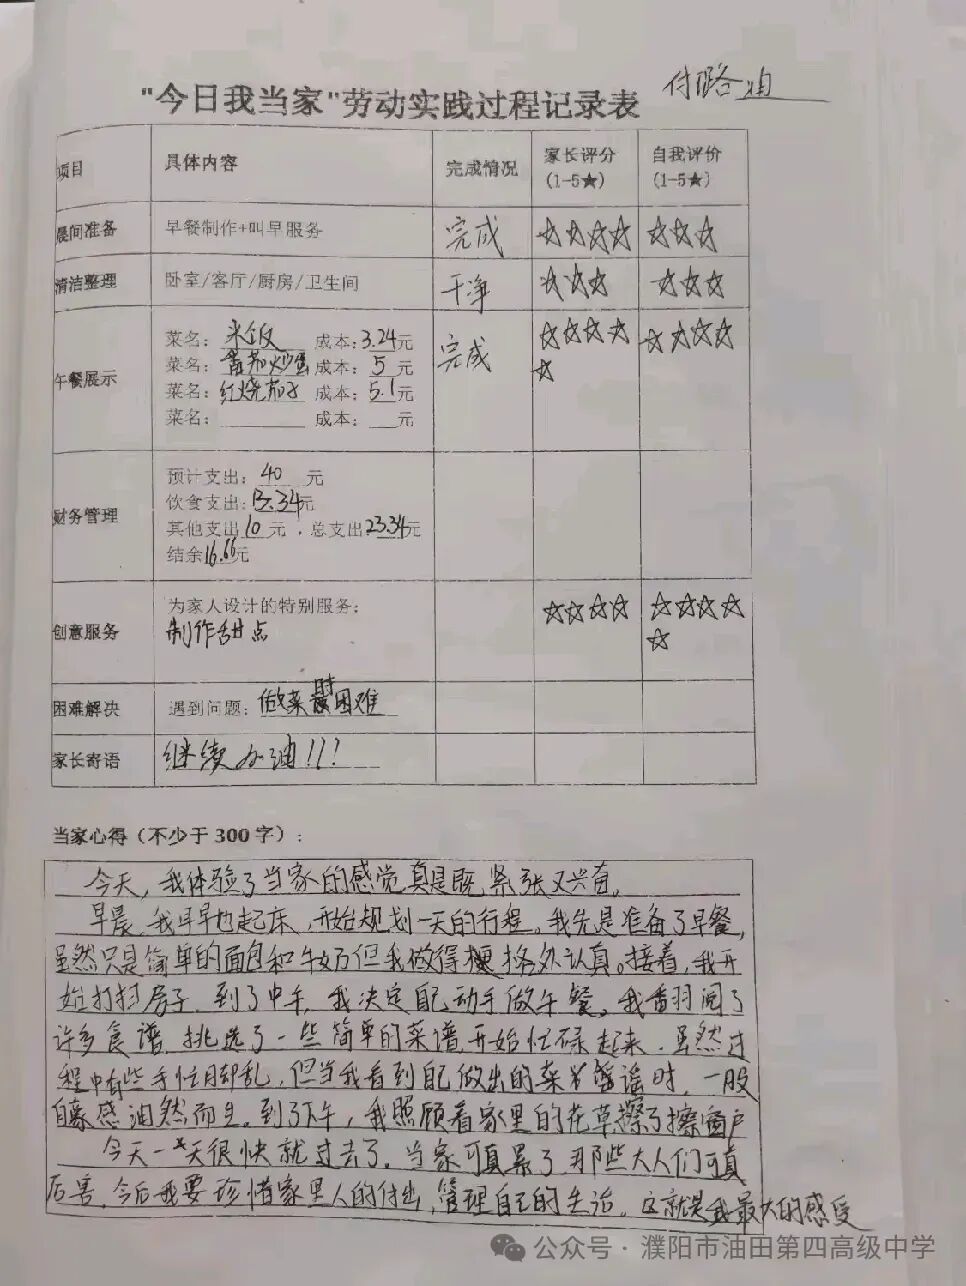 "今日我当家"劳动实践过程记录表
项目 具体内容 完成情况 家长评分 (1-5★) 自我评价 (1-5★)
晨间准备 早餐制作+叫早服务 完成 ☆☆☆☆ ☆☆☆
清洁整理 卧室/客厅/厨房/卫生间 干净 ☆☆☆ ☆☆☆
午餐展示 完成 ☆☆☆☆☆ ☆☆☆☆
菜名: 米饭 成本: 3.24元
菜名: 番茄炒蛋 成本: 5元
菜名: 红烧茄子 成本: 5.1元
菜名: 成本: 元
财务管理
预计支出: 40元
饮食支出: 13.34元
其他支出10元，总支出23.34元
结余16.66元
创意服务 ☆☆☆☆ ☆☆☆☆☆
为家人设计的特别服务:
制作甜点
困难解决 遇到问题: 做菜时困难
家长寄语 继续加油!!!
当家心得（不少于300字）:
今天，我体验了当家的感觉真是既紧张又兴奋。
早晨，我早早地起床，开始规划一天的行程。我先是准备了早餐，
虽然只是简单的面包和牛奶但我做得格外认真。接着，我开
始打扫房子，到了中午，我决定自己动手做午餐。我番羽阅了
许多食谱，挑选了一些简单的菜谱开始忙碌起来，虽然过
程中有些手忙脚乱，但当我看到自己做出的菜时，一股
自豪感油然而生。到了下午，我照顾着家里的花草擦了擦窗户
今天一天很快就过去了。当家可真累了那些大人们可真
厉害，今后我要珍惜家里人的付出，管理自己的生活。这就是我最大的感受
公众号·濮阳市油田第四高级中学